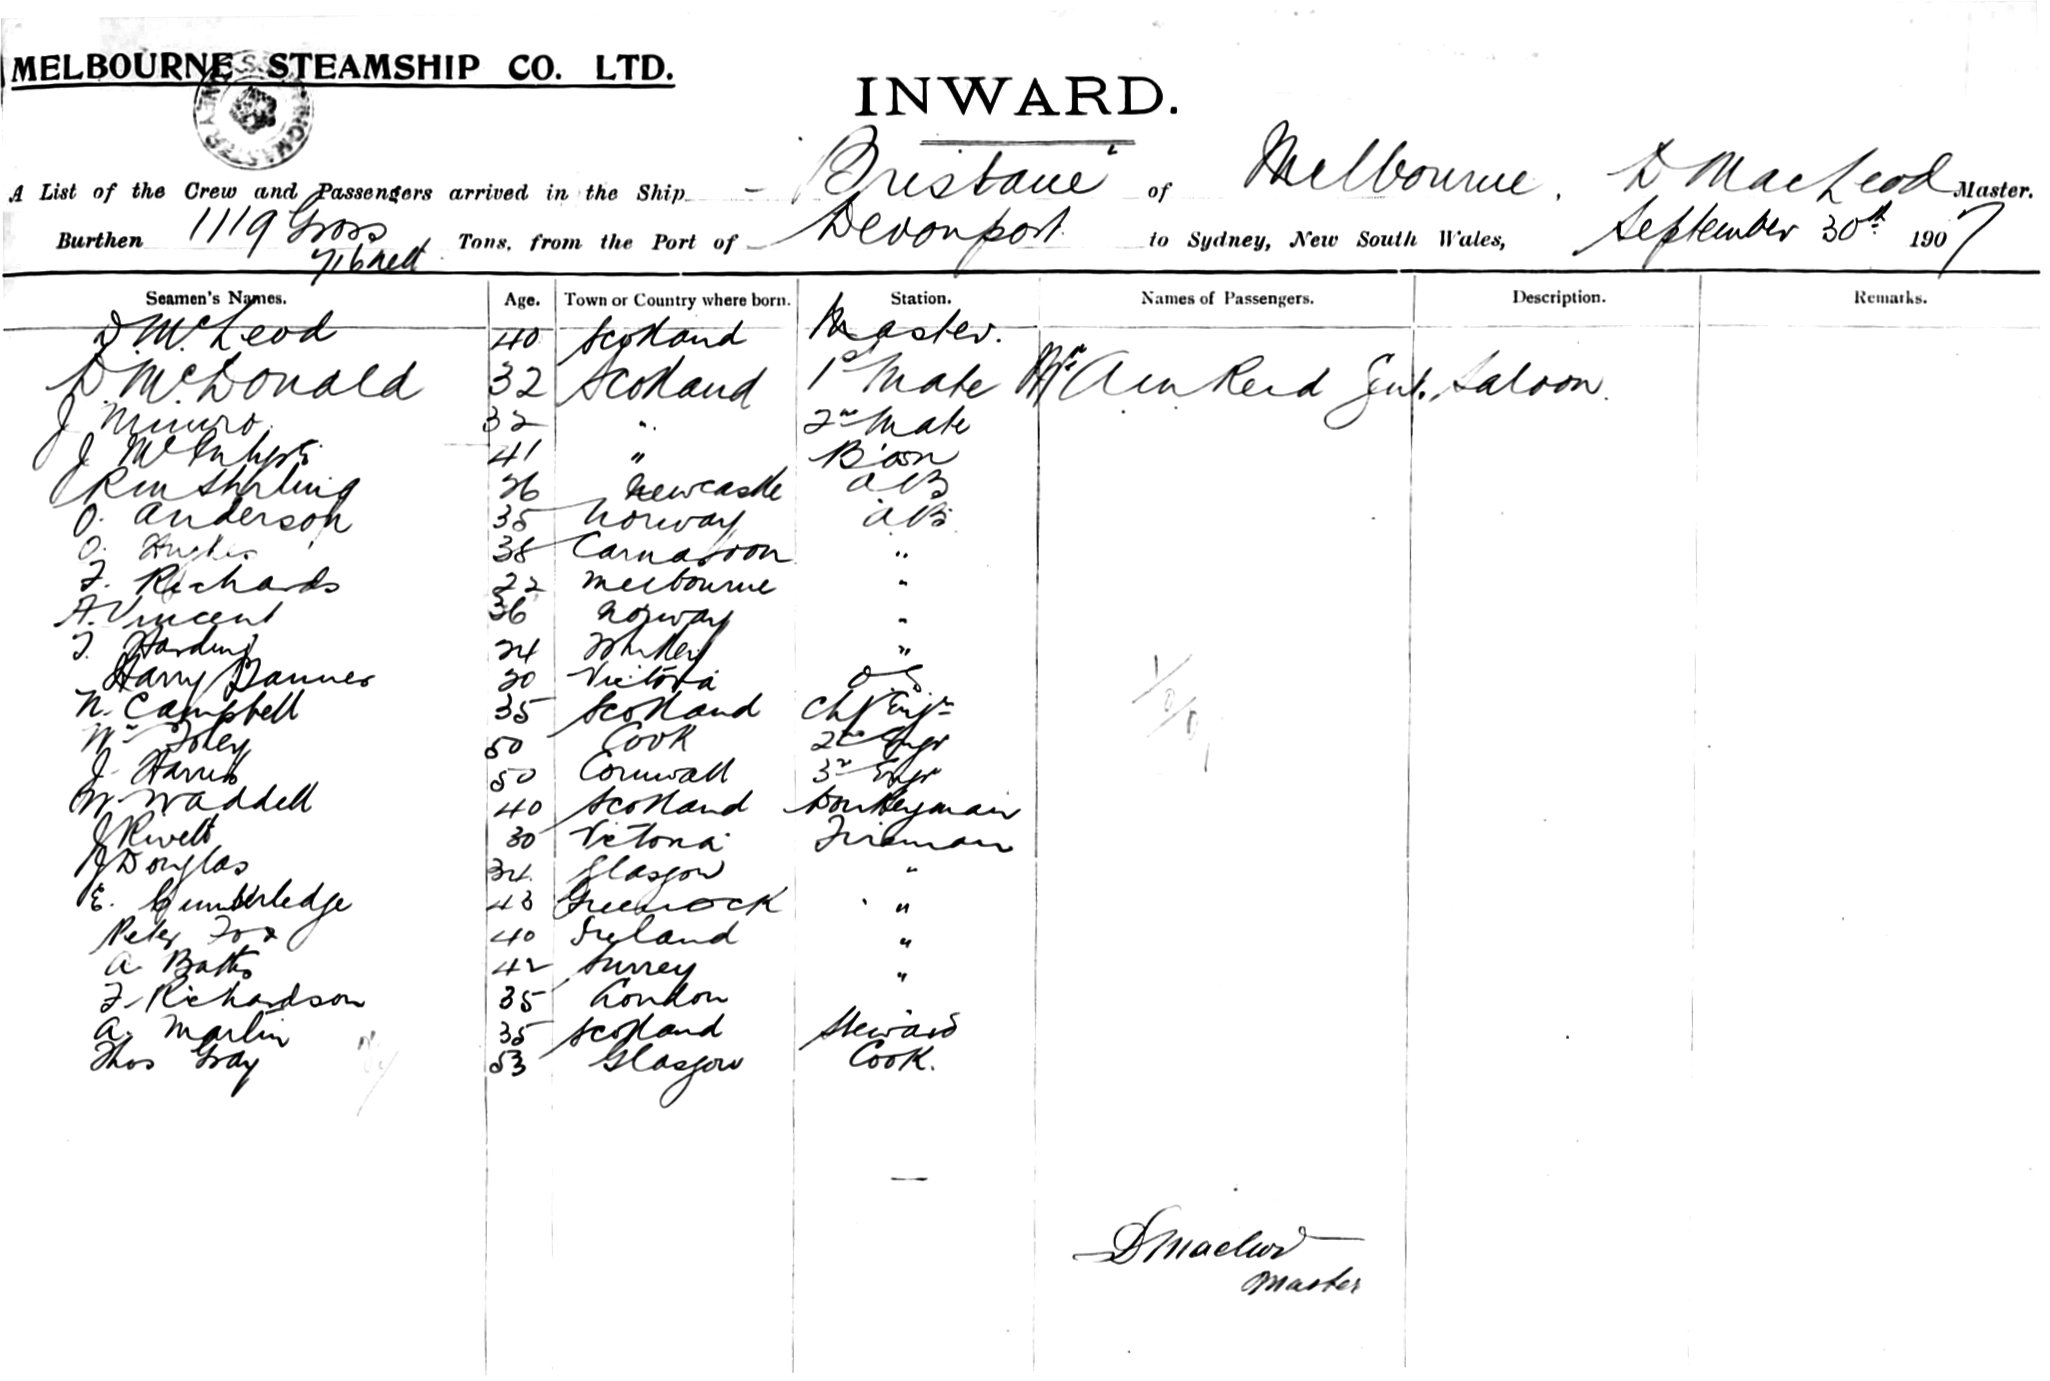 MELBOURNE STEAMSHIP CO. LTD.
INWARD.
A List of the Crew and Passengers arrived in the Ship Brisbane of Melbourne. D MacLeod Master.
Burthen 1119 Gross 716 nett Tons, from the Port of Devonport to Sydney, New South Wales, September 30th 1907
Seamen's Names. Age. Town or Country where born. Station. Names of Passengers. Description. Remarks.
D. McLeod 40 Scotland Master.
D. McDonald 32 Scotland 1st Mate Mr Reid Gent. Saloon.
J Munro 32 " 2nd Mate
J 41 " B'osn
Stirling 26 Newcastle AB
O. Anderson 35 Norway AB
O. Hughes 38 Carnarvon "
F. Richards 22 Melbourne "
A. Vincent 36 Norway "
T. Harding 24 "
Harry 20 Victoria OS
N. Campbell 35 Scotland Chf Engr
Wm Foley 50 Cook 2nd Engr
J Harris 50 Cornwall 3rd Engr
W. Waddell 40 Scotland Donkeyman
J Rivett 30 Victoria Fireman
J Douglas 34 Glasgow "
E. Cumberledge 43 Greenock "
Peter Fox 40 Ireland "
A. Batts 42 Surrey "
F. Richardson 35 London
A. Martin 35 Scotland Steward
Thos Gray 53 Glasgow Cook.
D Macleod
Master